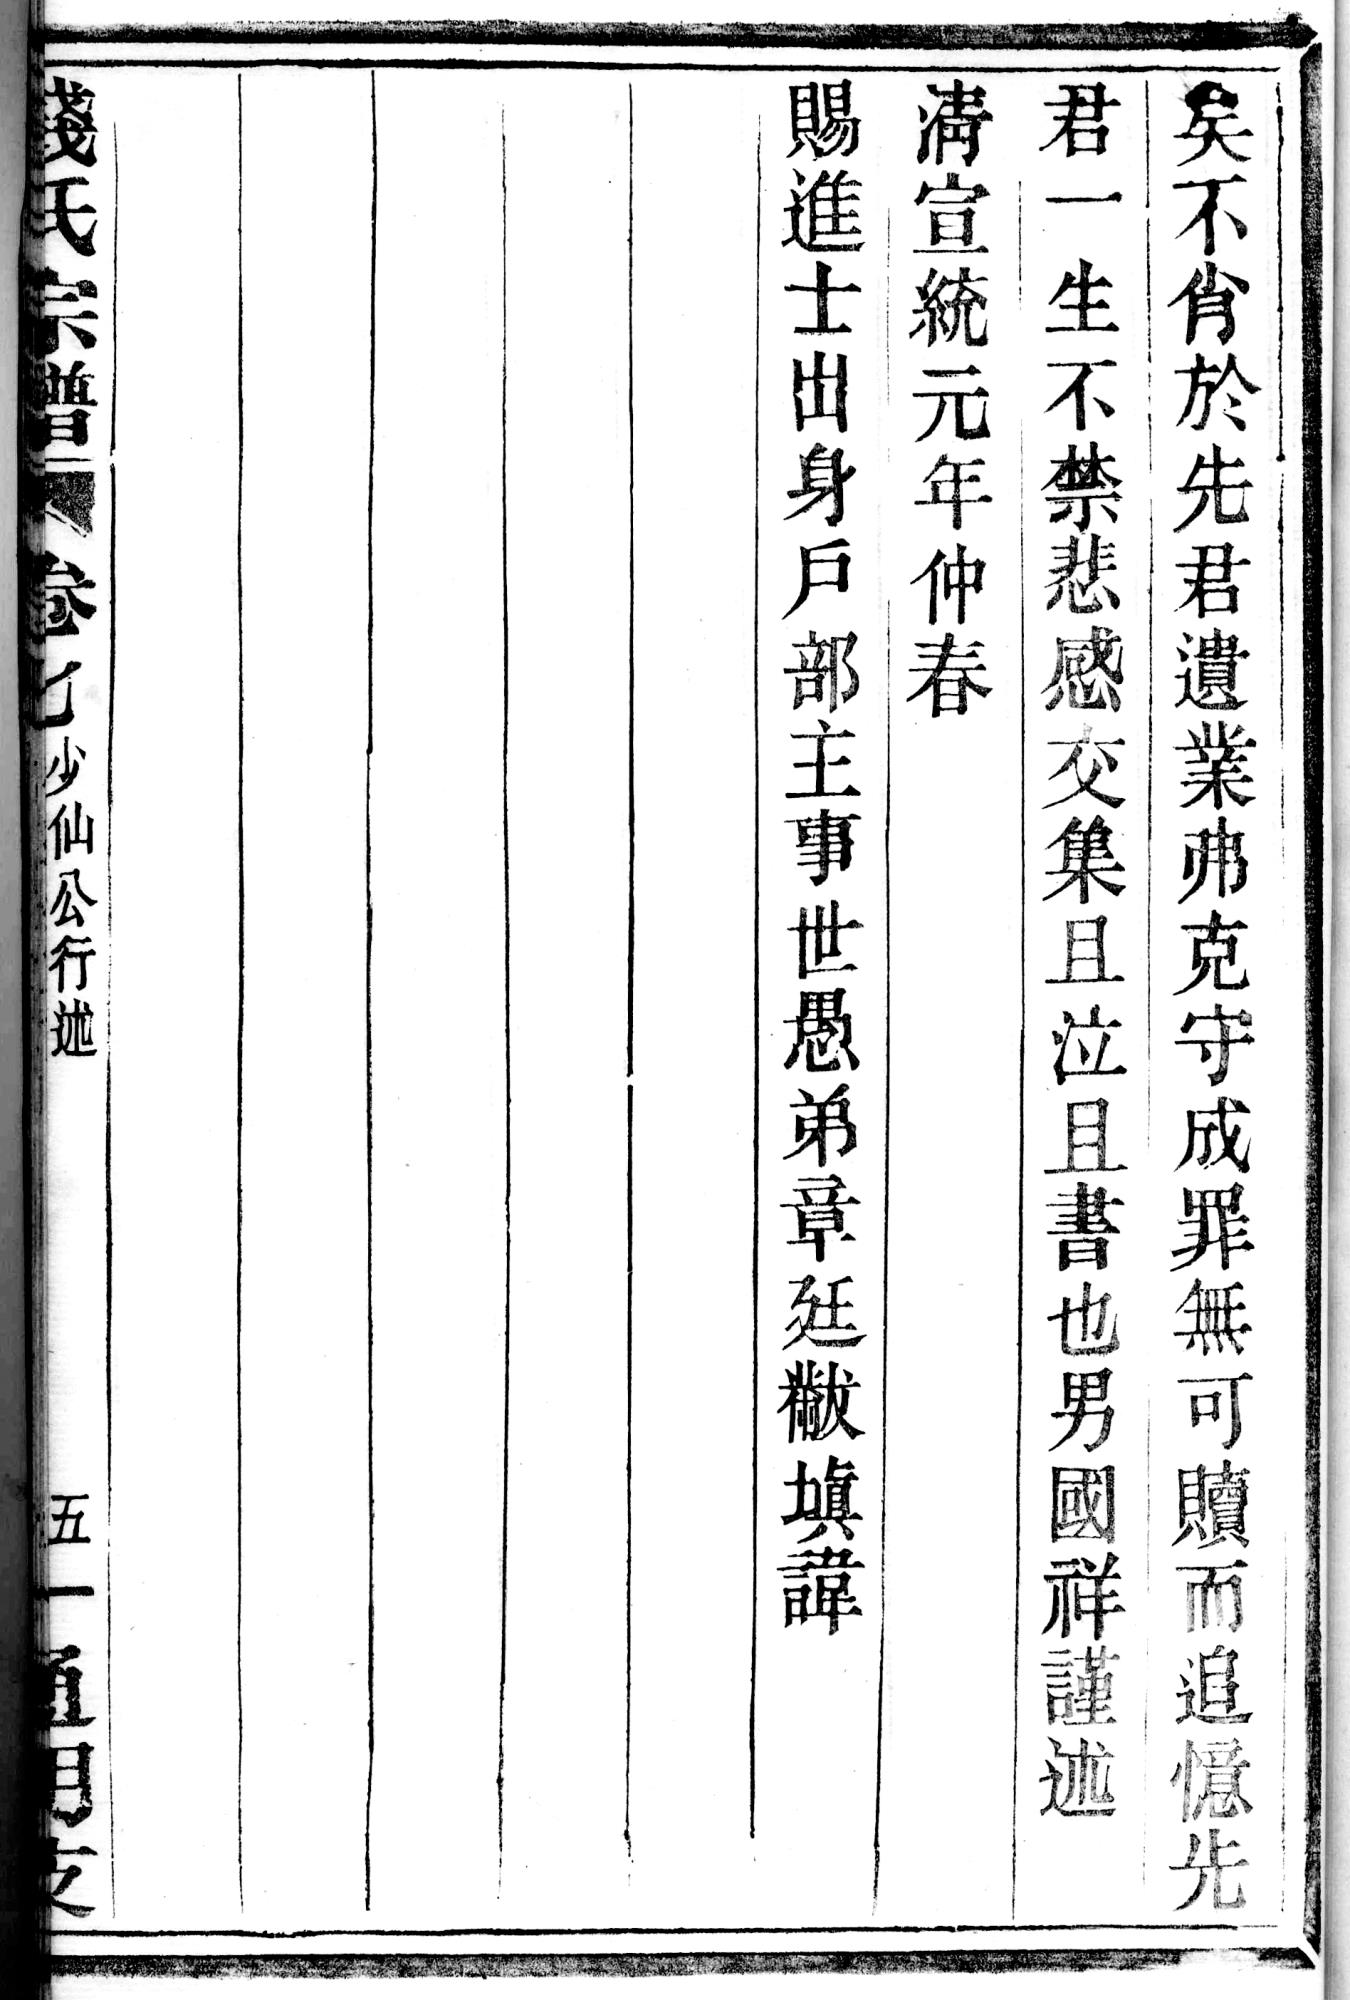 矣不肖於先君遺業弗克守成罪無可贖而追憶先
君一生不禁悲感交集且泣且書也男國祥謹述
淸宣統元年仲春
賜進士出身戶部主事世愚弟章廷黻塡諱
錢氏宗譜 卷七 少仙公行述 五一 通明支